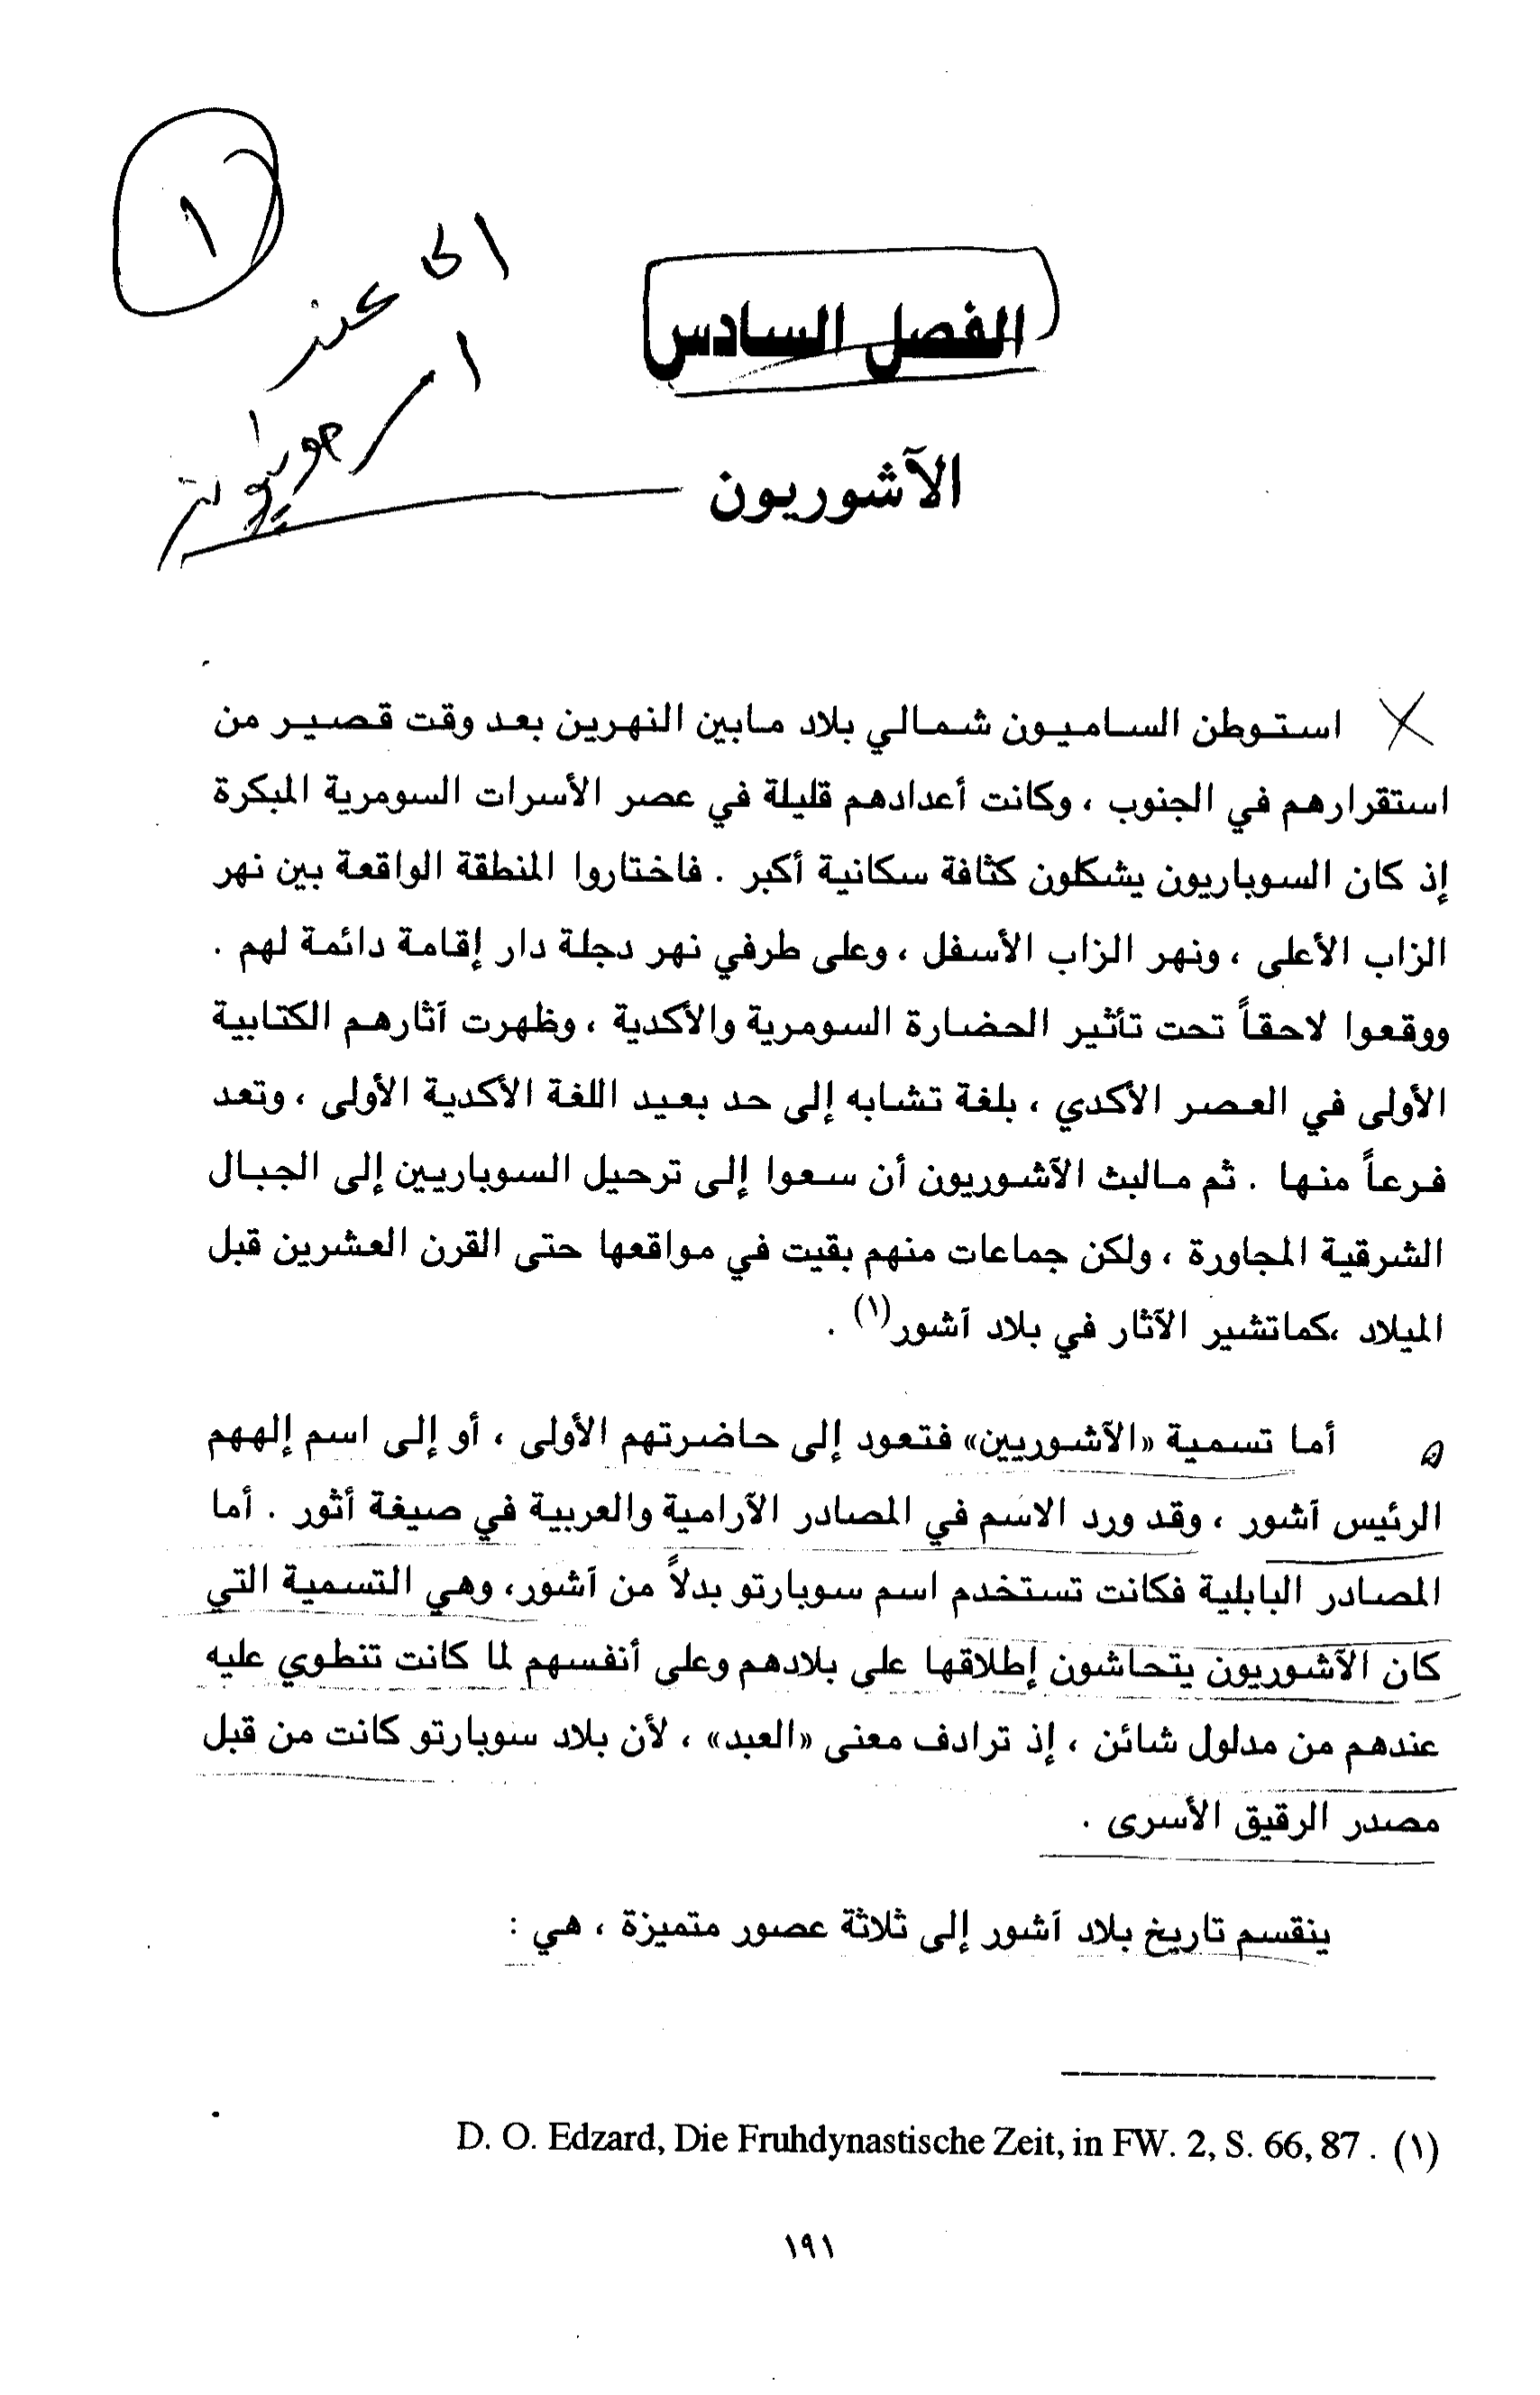 ١
الفصل السادس
الآشوريون
استوطن الساميون شمالي بلاد مابين النهرين بعد وقت قصير من
استقرارهم في الجنوب ، وكانت أعدادهم قليلة في عصر الأسرات السومرية المبكرة
إذ كان السوباريون يشكلون كثافة سكانية أكبر . فاختاروا المنطقة الواقعة بين نهر
الزاب الأعلى ، ونهر الزاب الأسفل ، وعلى طرفي نهر دجلة دار إقامة دائمة لهم .
ووقعوا لاحقاً تحت تأثير الحضارة السومرية والأكدية ، وظهرت آثارهم الكتابية
الأولى في العصر الأكدي ، بلغة تشابه إلى حد بعيد اللغة الأكدية الأولى ، وتعد
فرعاً منها . ثم مالبث الآشوريون أن سعوا إلى ترحيل السوباريين إلى الجبال
الشرقية المجاورة ، ولكن جماعات منهم بقيت في مواقعها حتى القرن العشرين قبل
الميلاد ،كماتشير الآثار في بلاد آشور(١) .
أما تسمية «الآشوريين» فتعود إلى حاضرتهم الأولى ، أو إلى اسم إلههم
الرئيس آشور ، وقد ورد الاسم في المصادر الآرامية والعربية في صيغة أثور . أما
المصادر البابلية فكانت تستخدم اسم سوبارتو بدلاً من آشور، وهي التسمية التي
كان الآشوريون يتحاشون إطلاقها على بلادهم وعلى أنفسهم لما كانت تنطوي عليه
عندهم من مدلول شائن ، إذ ترادف معنى «العبد» ، لأن بلاد سوبارتو كانت من قبل
مصدر الرقيق الأسرى .
ينقسم تاريخ بلاد آشور إلى ثلاثة عصور متميزة ، هي :
(١) D. O. Edzard, Die Fruhdynastische Zeit, in FW. 2, S. 66, 87 .
١٩١